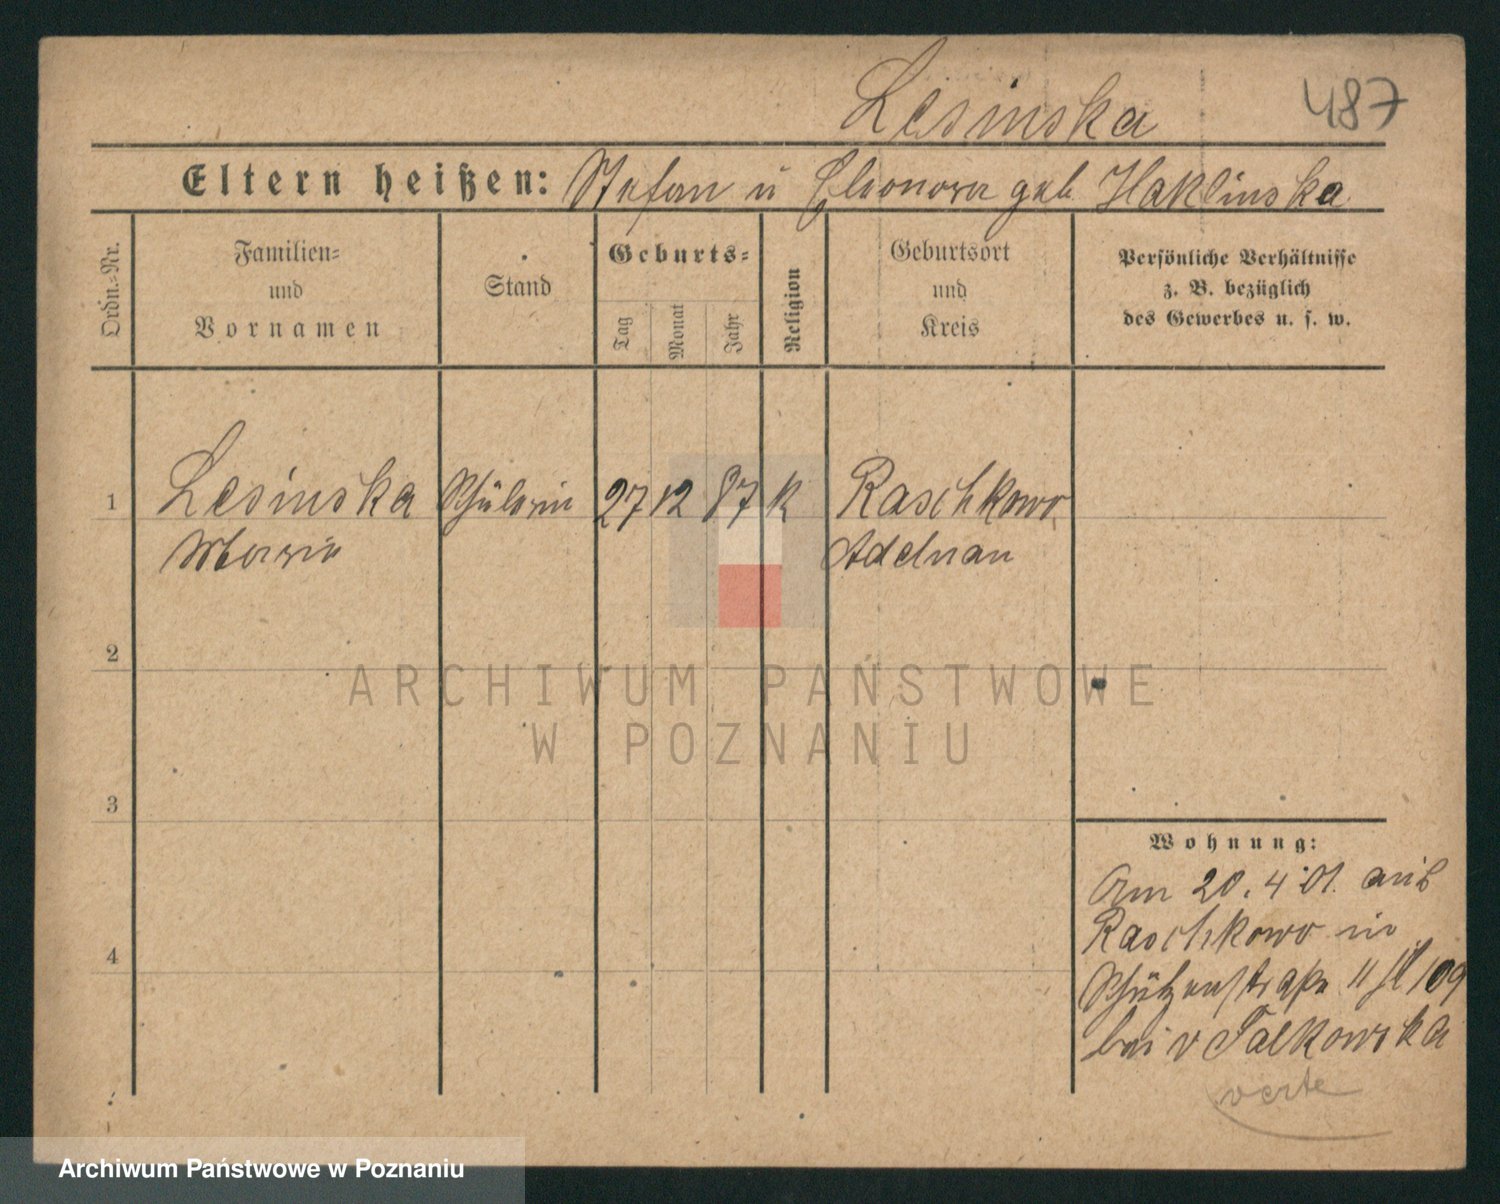 Lesinska
487
Eltern heißen: Stefan u Eleonora geb. Haklinska
Ordn.=Nr.
Familien=
und
Vornamen
Stand
Geburts=
Tag
Monat
Jahr
Religion
Geburtsort
und
Kreis
Persönliche Verhältnisse
z. B. bezüglich
des Gewerbes u. s. w.
1 Lesinska Schülerin 27 12 87 K Raschkowo
Maria Adelnau
2
ARCHIWUM PAŃSTWOWE
W POZNANIU
3
Wohnung:
Am 20.4.01. aus
Raschkowo in
4
Schützenstraße 11 109
bei v Falkowska
verte
Archiwum Państwowe w Poznaniu